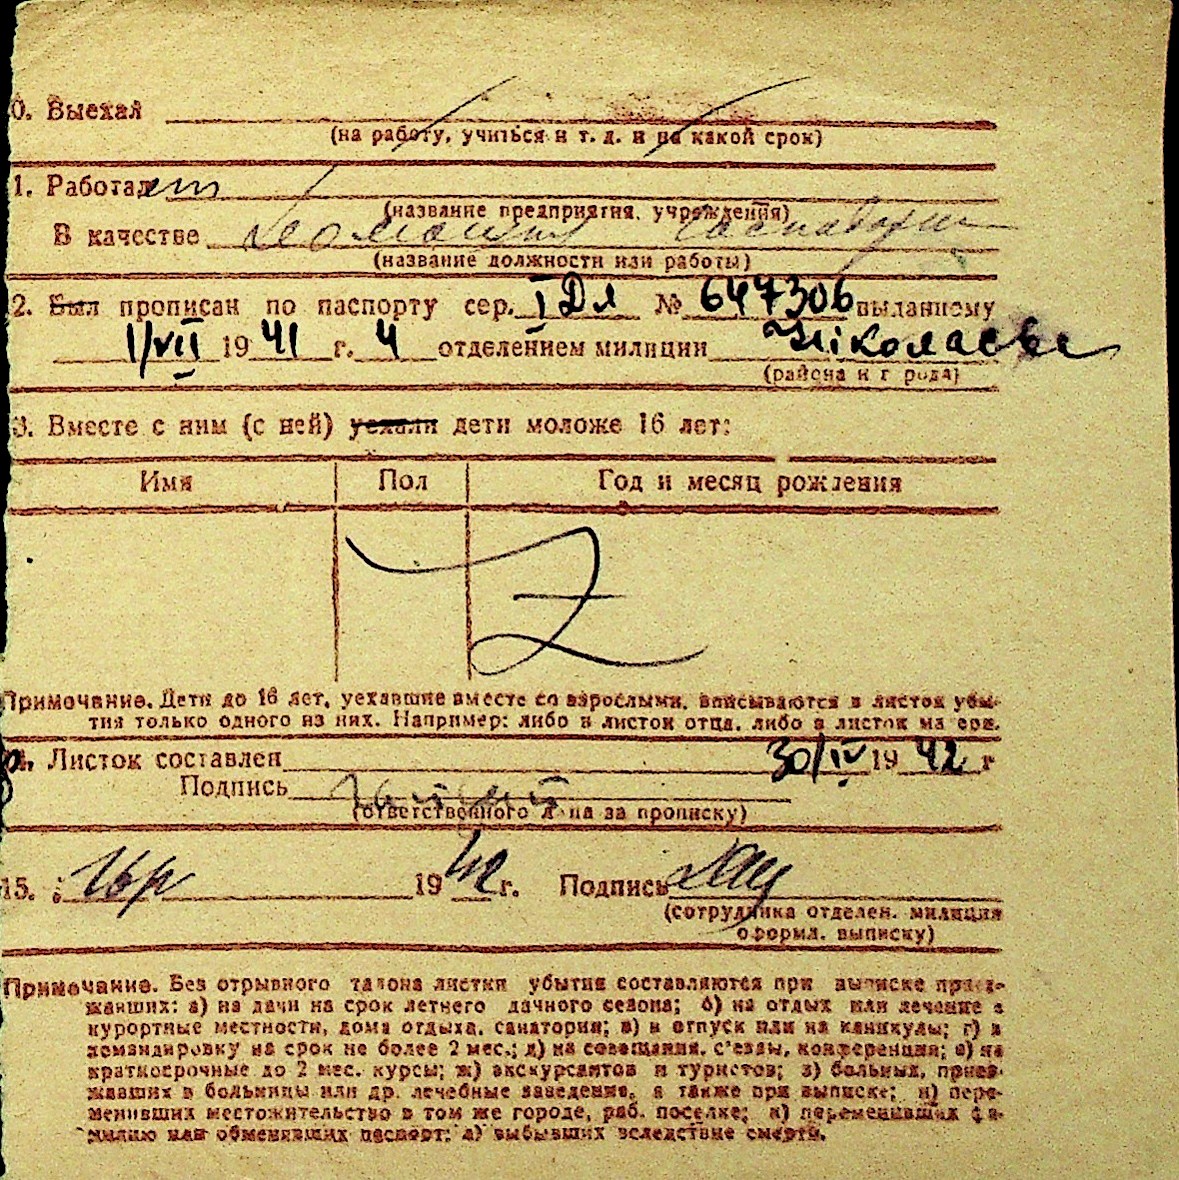 0. Выехал
(на работу, учиться и т. д. и на какой срок)
1. Работает
(название предприятия, учреждения)
В качестве
(название должности или работы)
2. Был прописан по паспорту сер. I ДЛ № 647306 выданному
1/VII 1941 г. 4 отделением милиции Ніколаєве
(района и города)
3. Вместе с ним (с ней) уехали дети моложе 16 лет:
Имя Пол Год и месяц рождения
Z
Примечание. Дети до 16 лет, уехавшие вместе со взрослыми, вписываются в листок убы-
тия только одного из них. Например: либо в листок отца, либо в листок матери.
4. Листок составлен 30/IV 1942 г
Подпись
(ответственного лица за прописку)
15. 1942 г. Подпись
(сотрудника отделен. милиции
оформл. выписку)
Примечание. Без отрывного талона листки убытия составляются при выписке приез-
жавших: а) на дачи на срок летнего дачного сезона; б) на отдых или лечение в
курортные местности, дома отдыха, санатории; в) в отпуск или на каникулы; г) в
командировку на срок не более 2 мес.; д) на совещания, с'езды, конференции; е) на
краткосрочные до 2 мес. курсы; ж) экскурсантов и туристов; з) больных, приез-
жавших в больницы или др. лечебные заведения, а также при выписке; и) пере-
менивших местожительство в том же городе, раб. поселке; к) переменивших фа-
милию или обменявших паспорт; л) выбывших вследствие смерти.